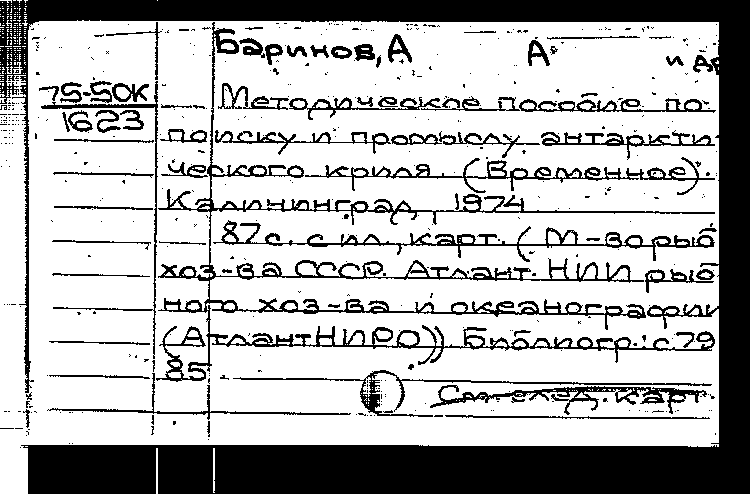 Баринов, А А и др
75-50к
1623
Методическое пособие по
поиску и промыслу антаркти
ческого криля. (Временное).
Калининград, 1974
87с. с ил., карт. (М-во рыб
хоз-ва СССР. Атлант. НИИ рыб
ного хоз-ва и океанографии
(АтлантНИРО)) Библиогр.: с 79
85
См. след. карт.